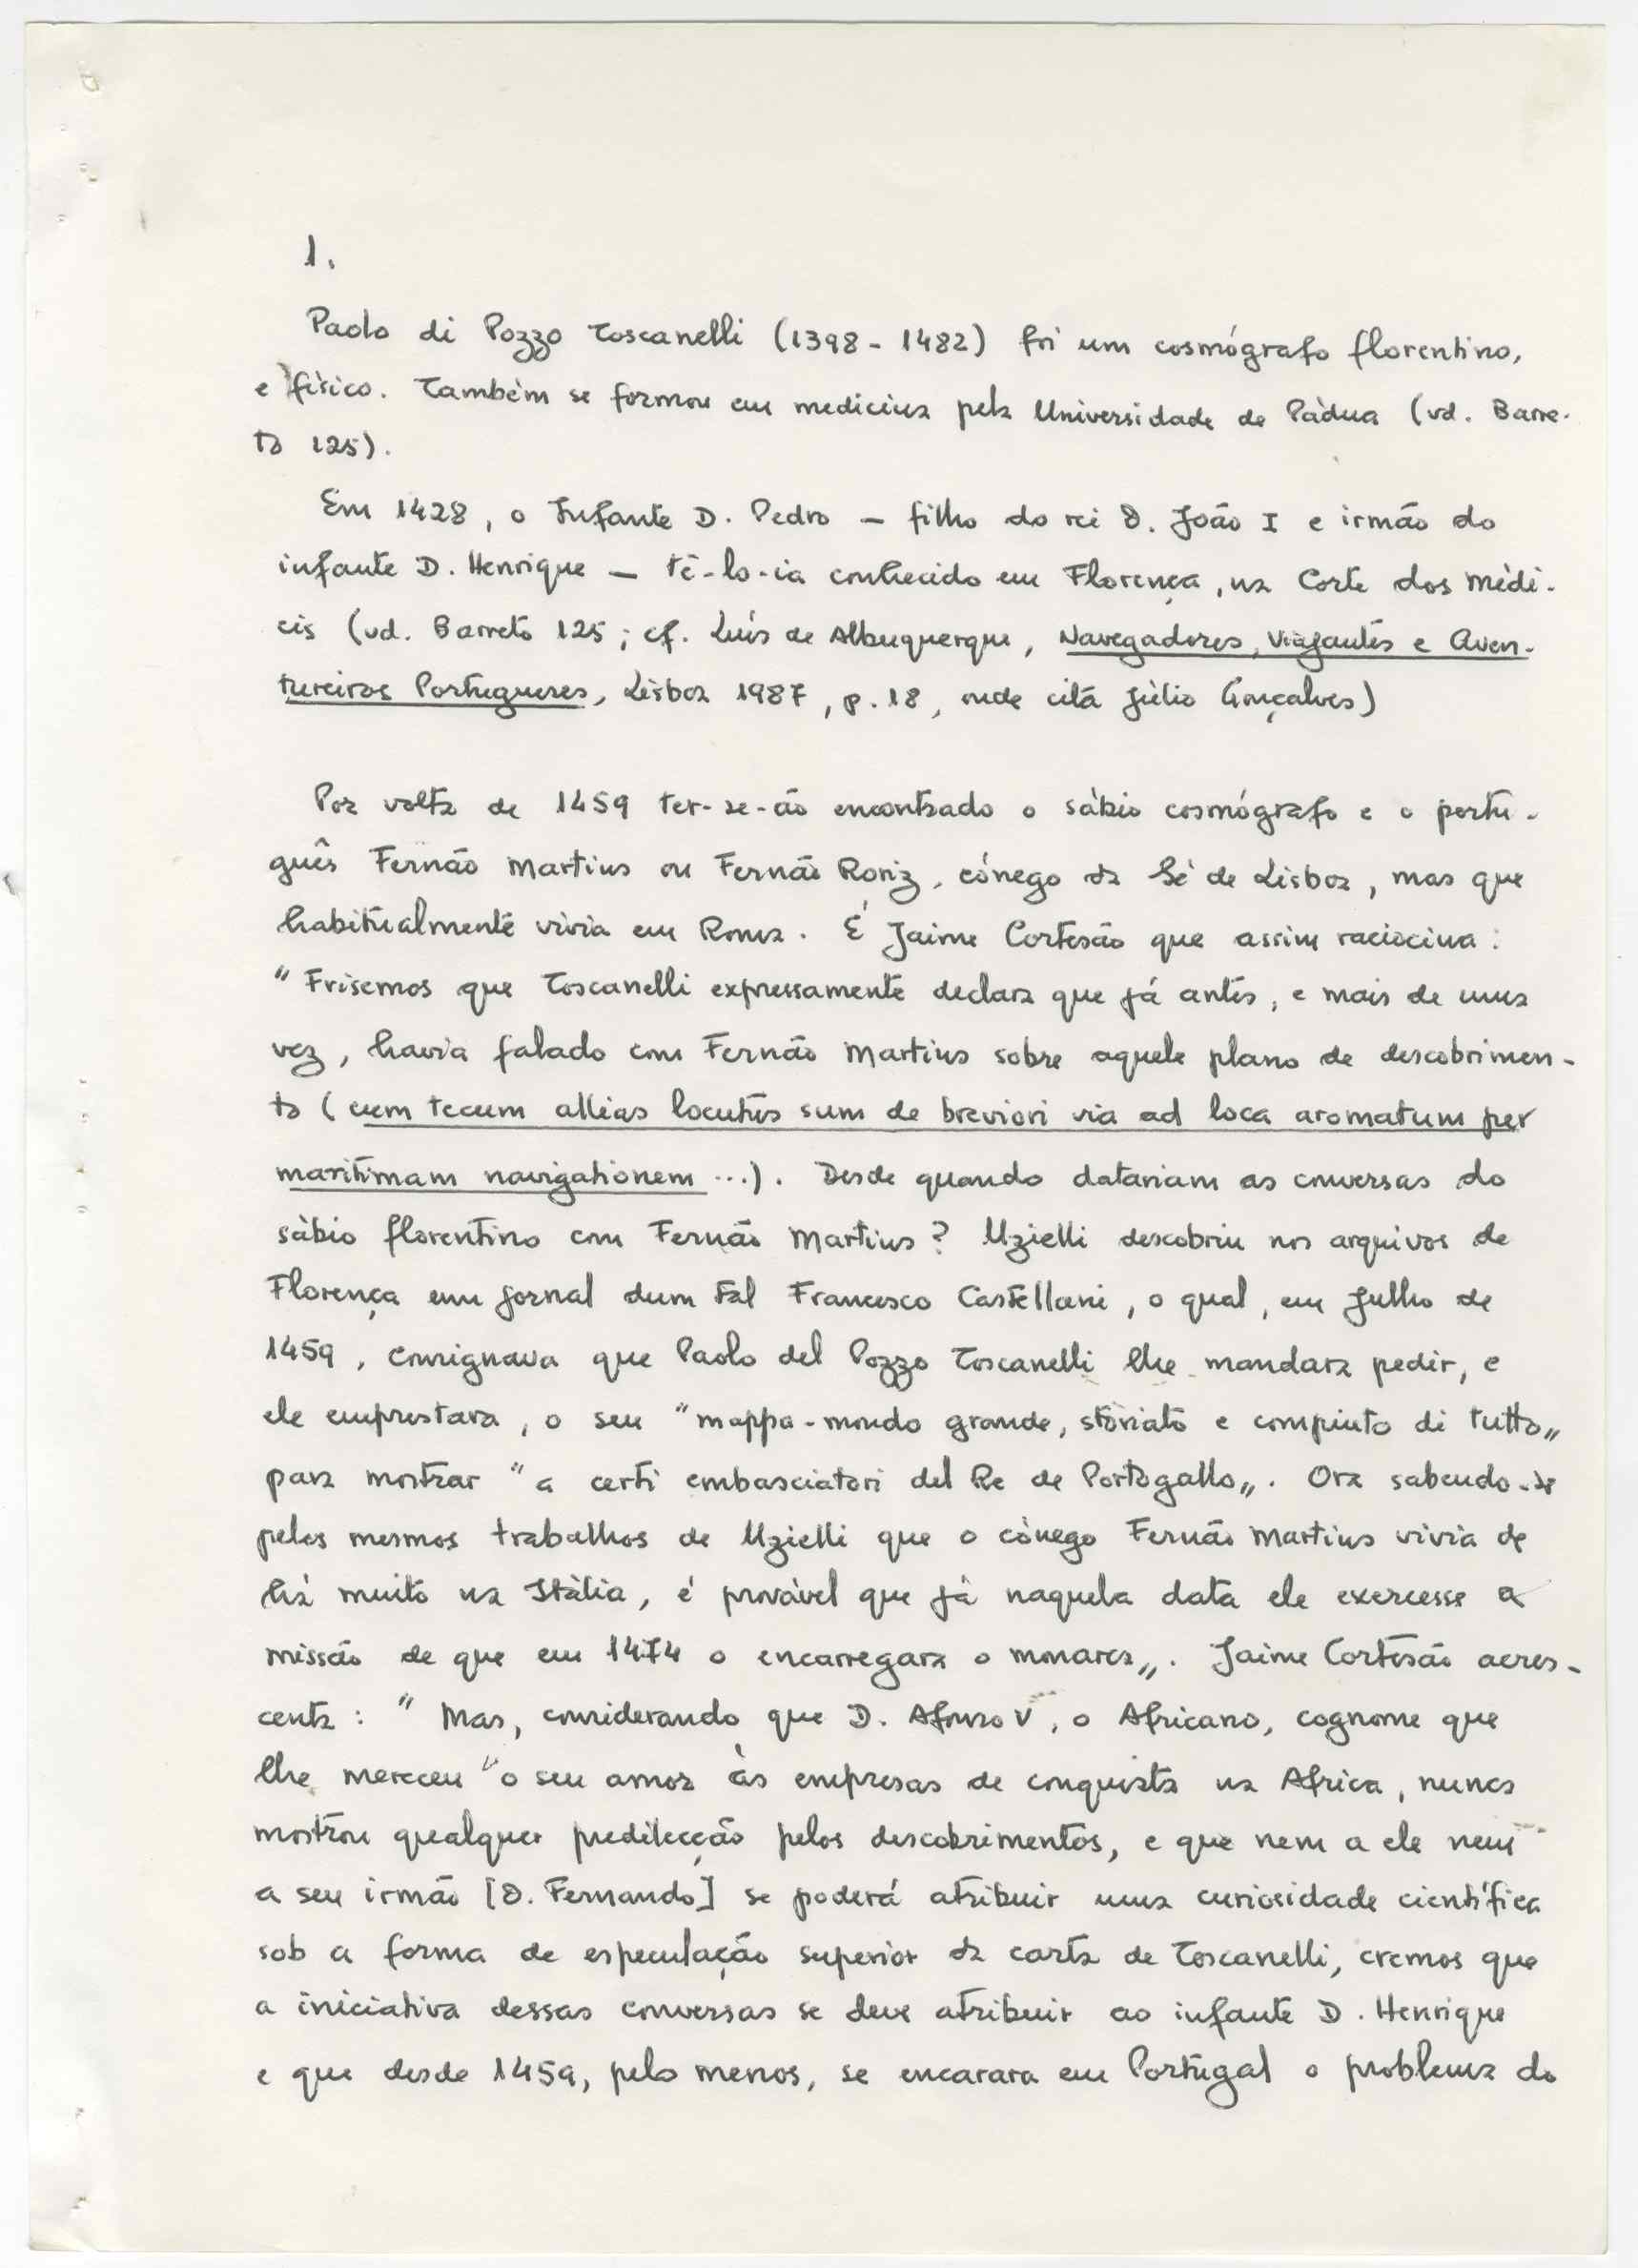 1.
Paolo di Pozzo Toscanelli (1398 - 1482) foi um cosmógrafo florentino,
e físico. Também se formou em medicina pela Universidade de Pádua (vd. Barre-
to 125).
Em 1428, o Infante D. Pedro — filho do rei D. João I e irmão do
infante D. Henrique — tê-lo-ia conhecido em Florença, na Corte dos Médi-
cis (vd. Barreto 125; cf. Luís de Albuquerque, Navegadores, Viajantes e Aven-
tureiros Portugueses, Lisboa 1987, p. 18, onde cita Júlio Gonçalves)
Por volta de 1459 ter-se-ão encontrado o sábio cosmógrafo e o portu-
guês Fernão Martins ou Fernão Roriz, cónego da Sé de Lisboa, mas que
habitualmente vivia em Roma. É Jaime Cortesão que assim raciocina:
"Frisemos que Toscanelli expressamente declara que já antes, e mais de uma
vez, havia falado com Fernão Martins sobre aquele plano de descobrimen-
to (cum tecum allias locutus sum de breviori via ad loca aromatum per
maritimam navigationem ...). Desde quando datariam as conversas do
sábio florentino com Fernão Martins? Uzielli descobriu nos arquivos de
Florença um jornal dum tal Francesco Castellani, o qual, em Julho de
1459, consignava que Paolo del Pozzo Toscanelli lhe mandara pedir, e
ele emprestara, o seu "mappa-mondo grande, storiato e compiuto di tutto„
para mostrar "a certi embasciatori del Re de Portogallo„. Ora sabendo-se
pelos mesmos trabalhos de Uzielli que o cónego Fernão Martins vivia de
há muito na Itália, é provável que já naquela data ele exercesse a
missão de que em 1474 o encarregara o monarca„. Jaime Cortesão acres-
centa: "Mas, considerando que D. Afonso V, o Africano, cognome que
lhe mereceu "o seu amor às empresas de conquista na Africa, nunca
mostrou qualquer predilecção pelos descobrimentos, e que nem a ele nem
a seu irmão [D. Fernando] se poderá atribuir uma curiosidade científica
sob a forma de especulação superior da carta de Toscanelli, cremos que
a iniciativa dessas conversas se deve atribuir ao infante D. Henrique
e que desde 1459, pelo menos, se encarara em Portugal o problema do